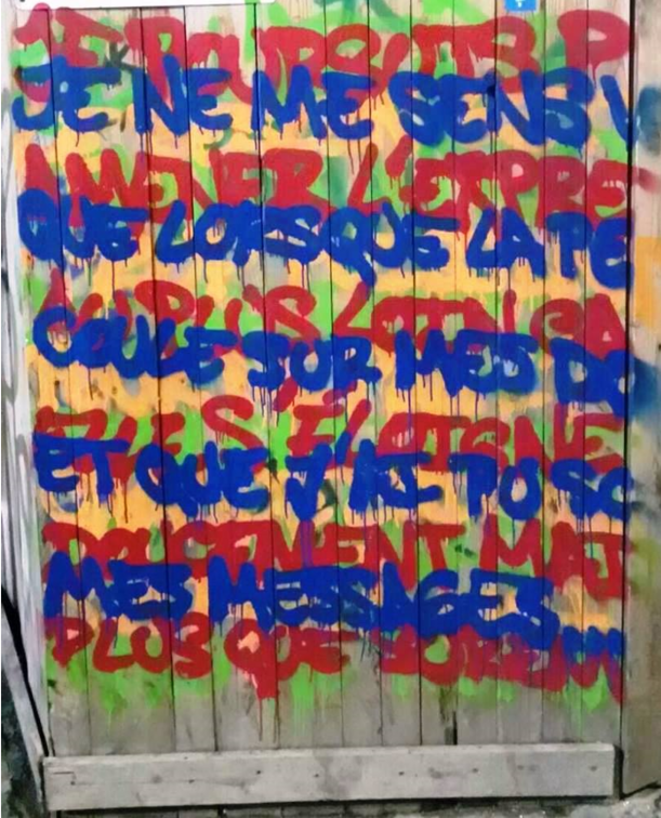 JE POURRAIS P
JE NE ME SENS V
AMENER L'EXPRE
QUE LORSQUE LA PE
PLUS LOIN CA
COULE SUR MES DO
ELLE S'ÉLOIGNE
ET QUE J'AI PO SC
DOUCEMENT MAI
MES MESSAGES
PLUS QUE